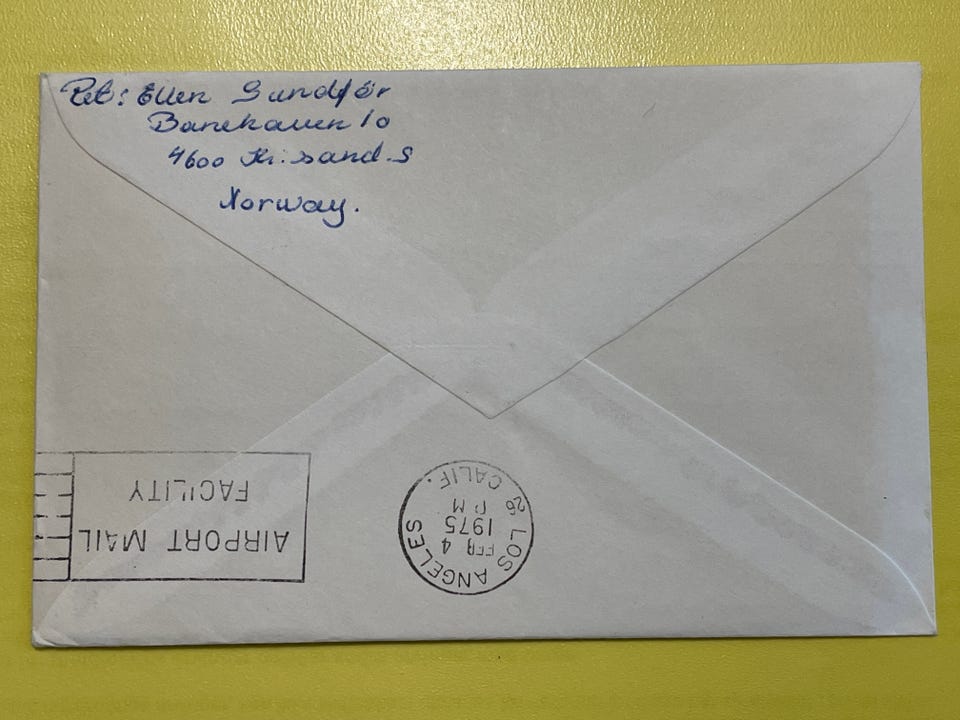 Ret: Ellen Sundfør
Banehaven 10
4600 Kr.sand.S
Norway.
AIRPORT MAIL
FACILITY
LOS ANGELES
FEB 4
1975
PM
26 CALIF.